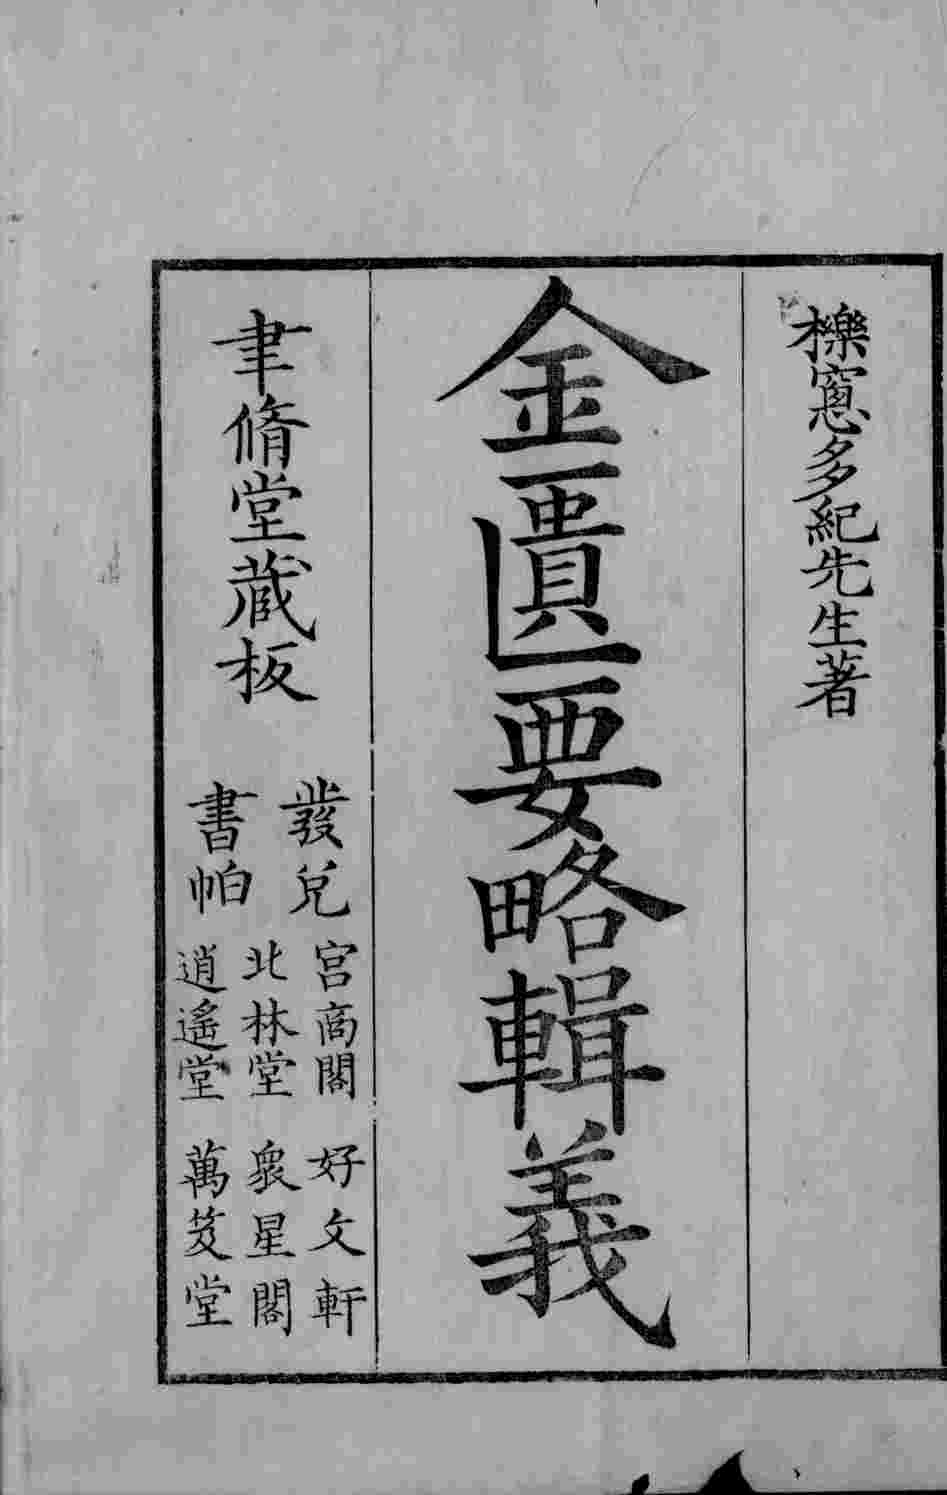 櫟窻多紀先生著
金匱要略輯義
聿脩堂蔵板
發兌
書帕
宮商閣
北林堂
逍遙堂
好文軒
衆星閣
萬笈堂